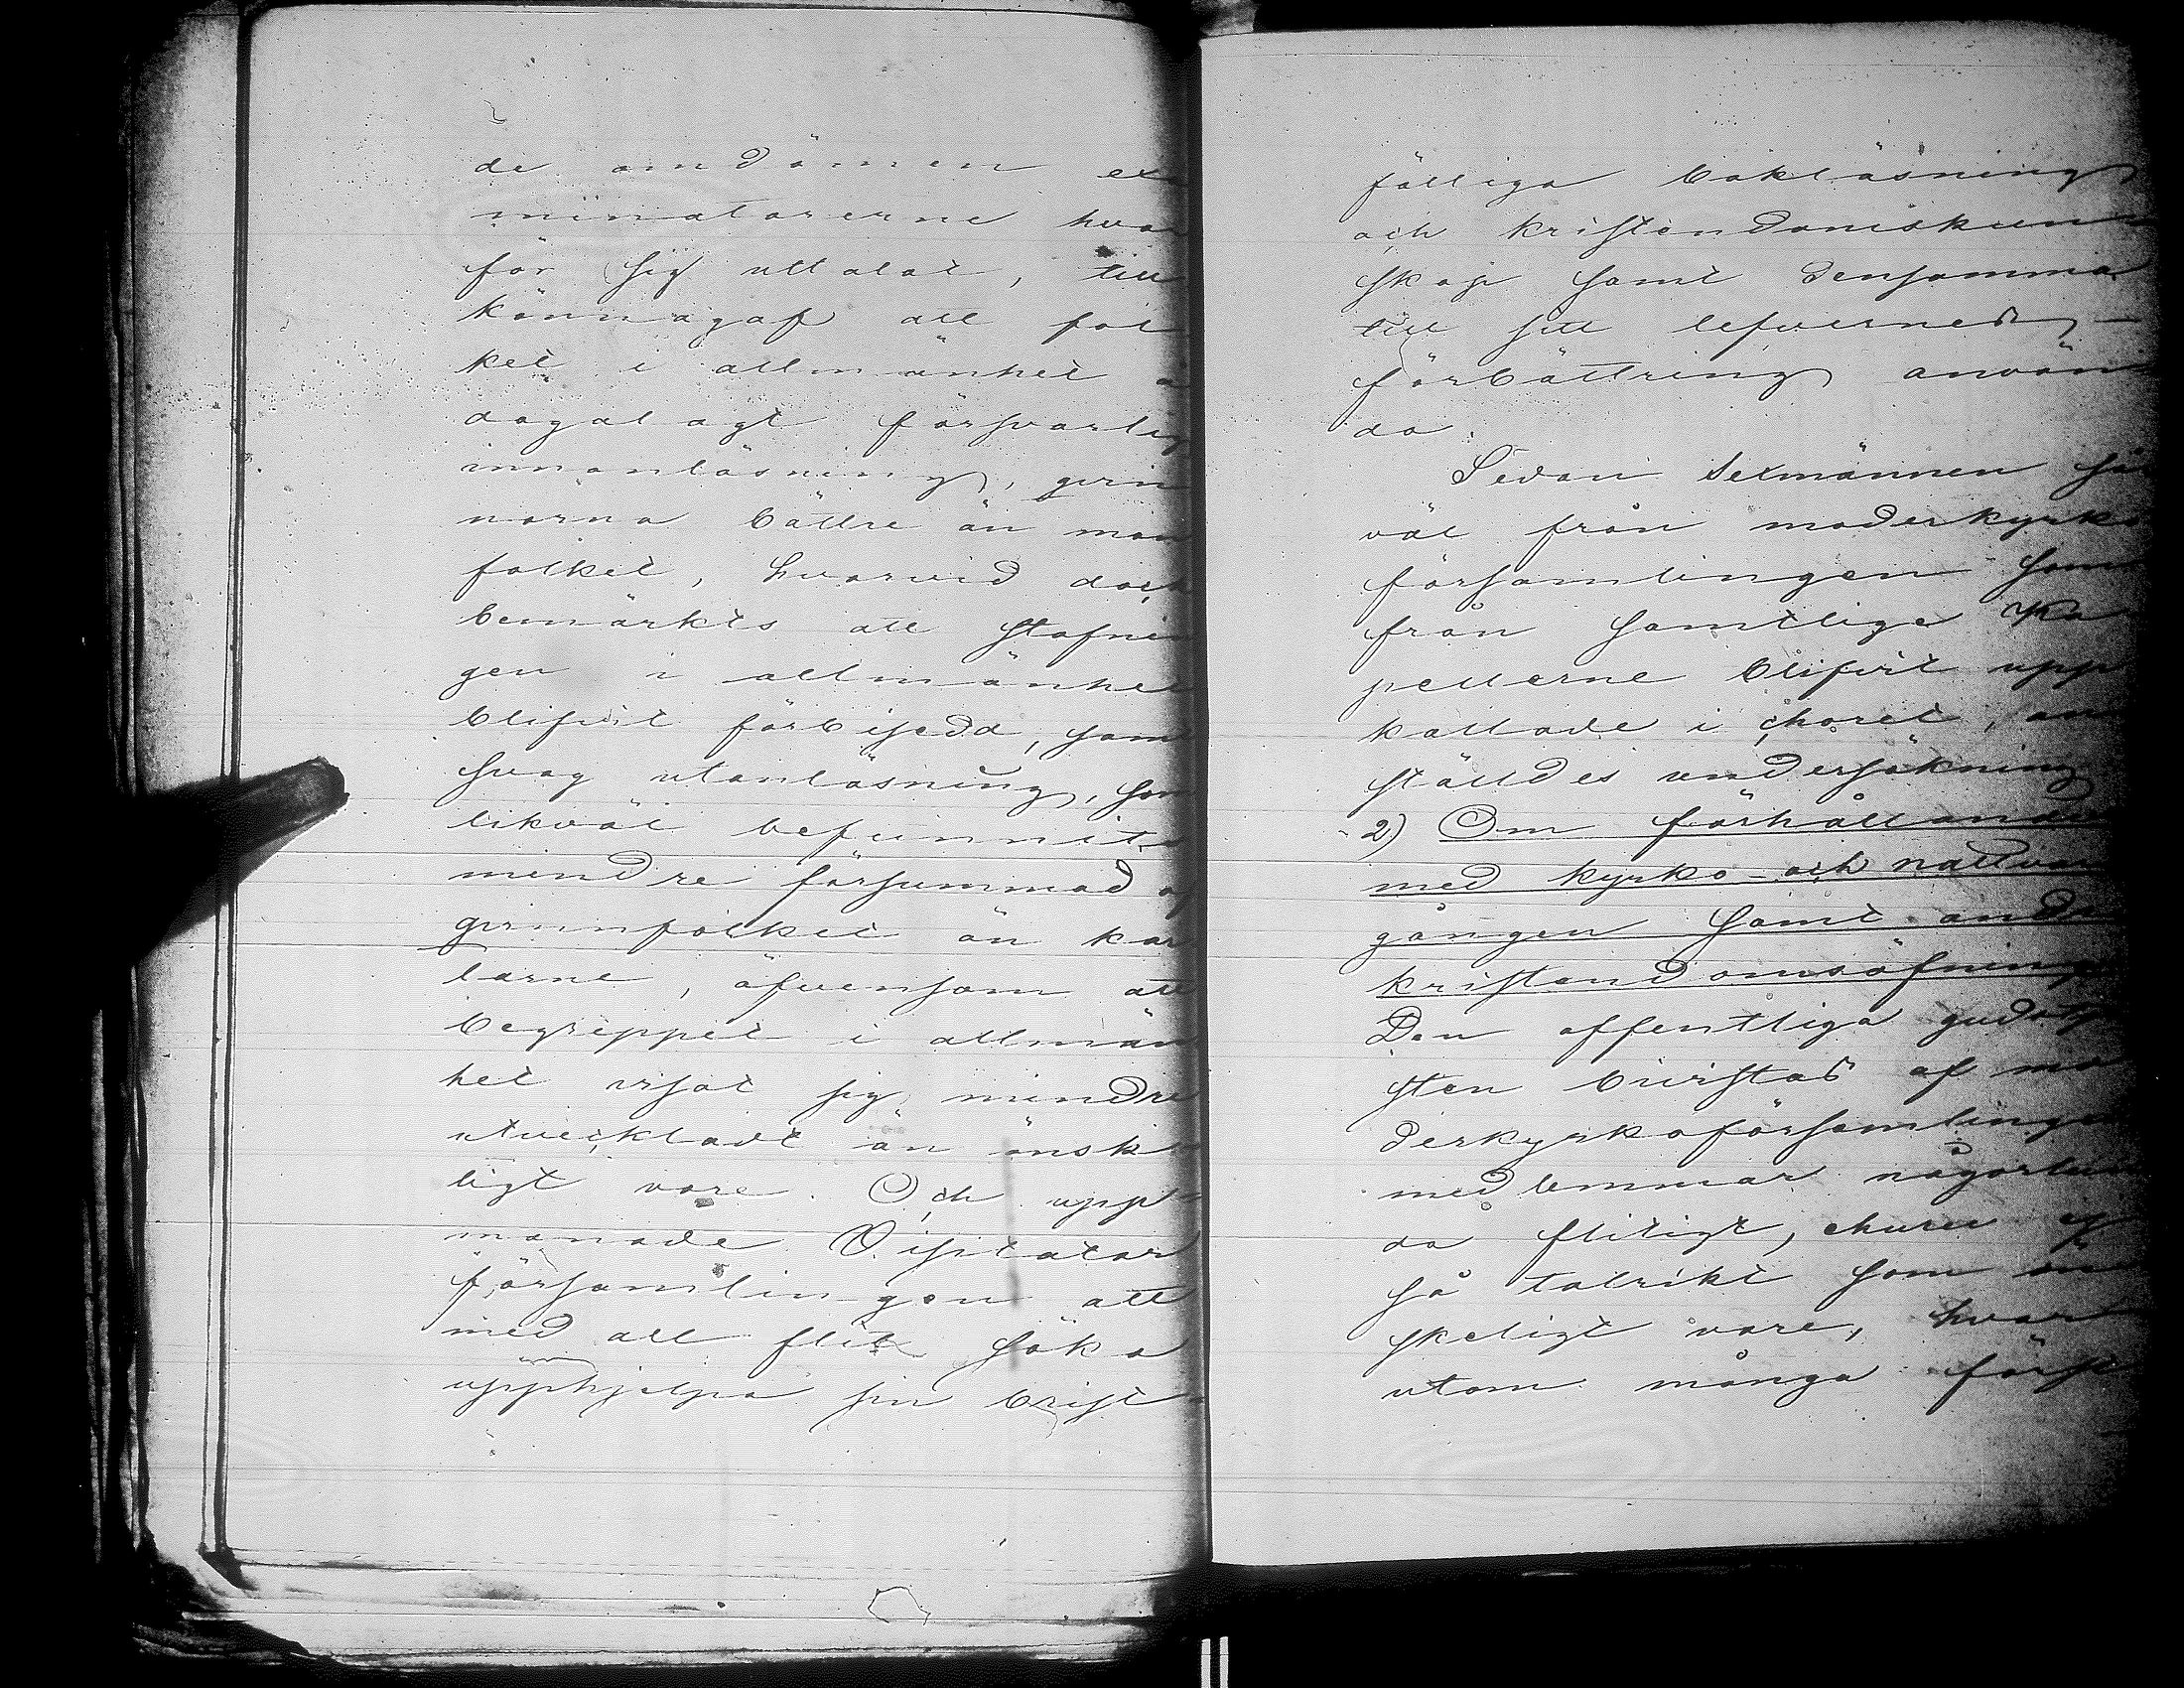 de omdömen exa
minatorerne hvar
för sig uttalat, till
kännagaf att fol
ket i allmänhet å
dagalagt försvarlig
innanläsning, qvin
norna bättre än man
folket, hvarvid doch
bemärkts att stafnin
gen i allmänhet
blifvit förbisedd, samt
svag utanläsning, som
likväl befunnits
mindre försummad af
qvinnfolket än kar
larne, äfvensom att
begreppet i allmän
het visat sig mindre
utveckladt än önsk
ligt vore. Och upp
manade Visitator
församlingen att
med all flit söka
upphjelpa sin brist
fälliga bokläsning
och kristendomskun
skap samt densamma
till sitt lefvernes
förbättring använ
da.
Sedan Sexmännen så
väl från moderkyrko
församlingen som
från samtlige Ka
pellerne blifvit upp
kallade i choret, an
ställdes undersökning
2) Om förhållandet
med kyrko- och nattvard
gången samt andra
kristendomsöfningar
Den offentliga gudstjen
sten bivistas af mo
derkyrkoförsamlingens
medlemmar någorlun
da flitigt, ehuru ej
så talrikt som ön
skeligt vore, hvar
utom många först